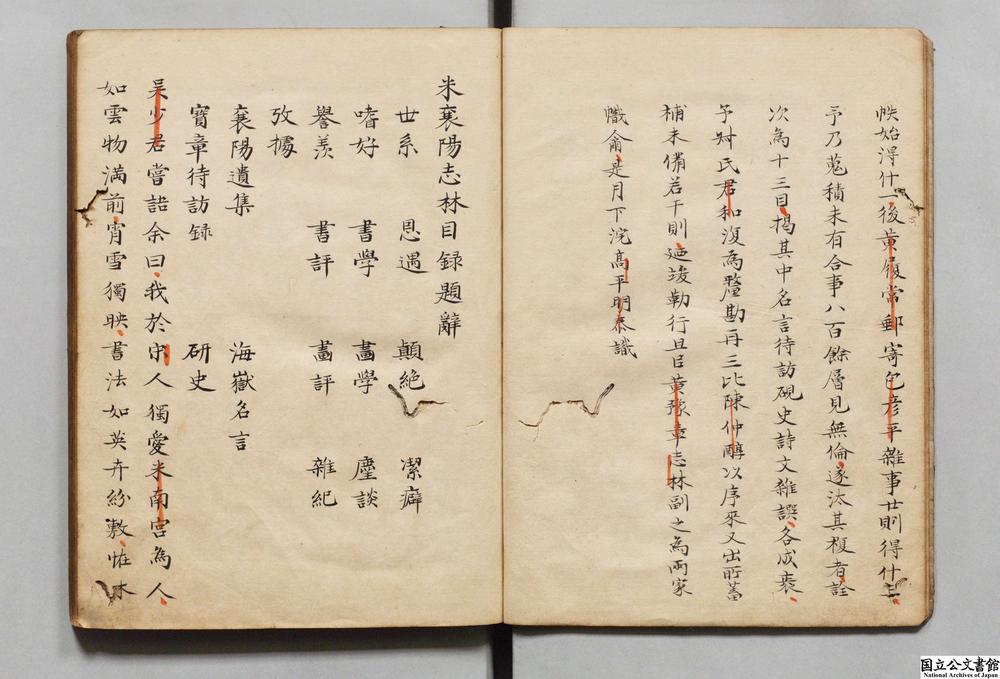 帙始淂什一後黄履常郵寄包彦平雜事廿則得什三
予乃蒐積未有合事八百餘層見無倫遂汰其複者詮
次為十三目揭其中名言待訪硯史詩文雜譔各成袠
予舛氏君和復為釐勘再三比陳仲醇以序來又出所蓄
補未備若干則廼竣勒行且臣黄豫章志林副之為兩家
幟龠是月下浣高平明泰識
米襄陽志林目録題辭
世系 恩遇 顛絶 潔癖
嗜好 書學 畵學 麈談
譽羨 書評 畵評 雜紀
攷據
襄陽遺集 海嶽名言
寶章待訪録 研史
吴少君嘗語余曰我於宋人獨愛米南宫為人
如雲物滿前宵雪獨映書法如英卉紛敷恠木
国立公文書館
National Archives of Japan